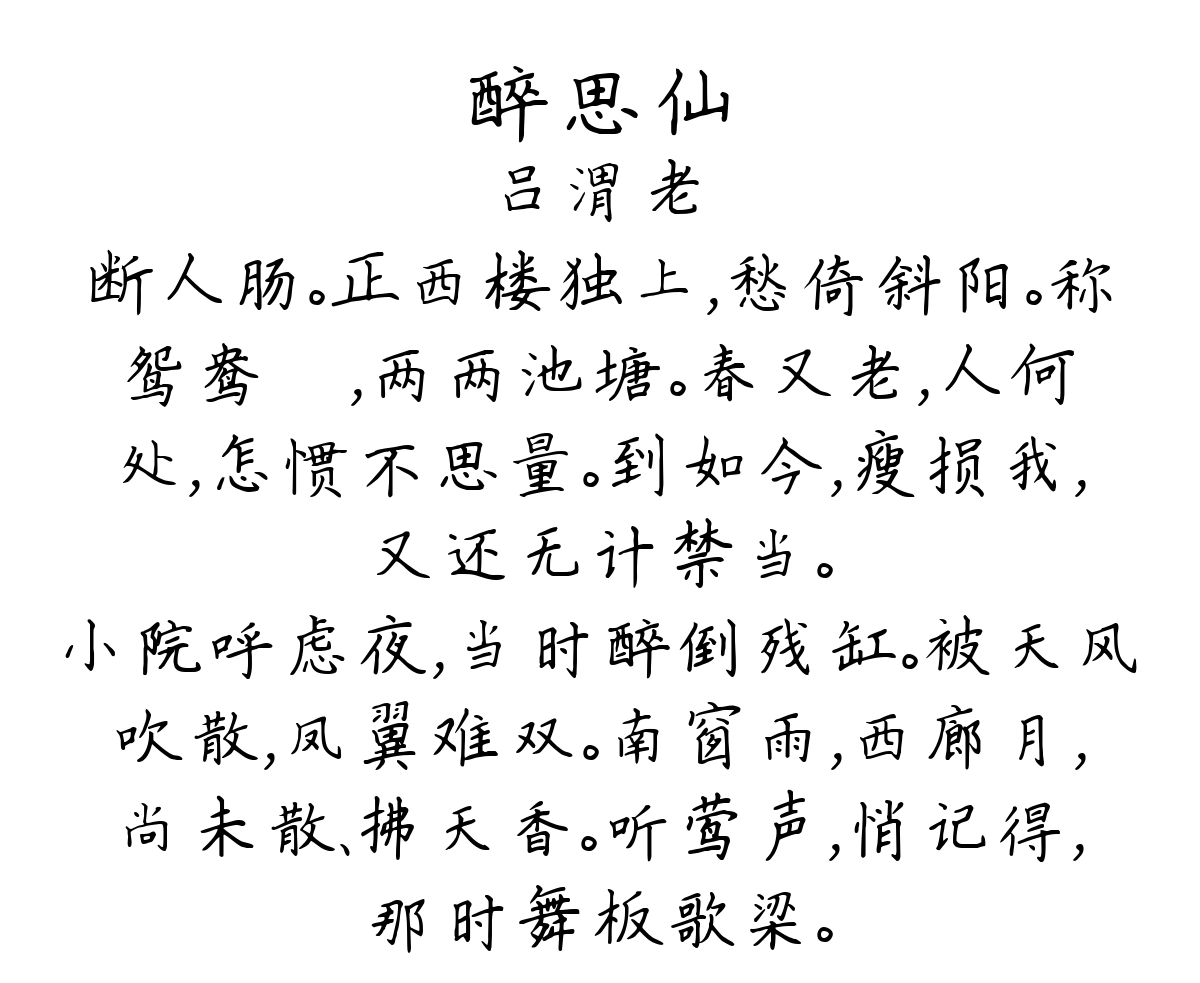 醉思仙
吕渭老
断人肠。正西楼独上,愁倚斜阳。称
鸳鸯 ,两两池塘。春又老,人何
处,怎惯不思量。到如今,瘦损我,
又还无计禁当。
小院呼虑夜,当时醉倒残缸。被天风
吹散,凤翼难双。南窗雨,西廊月,
尚未散、拂天香。听莺声,悄记得,
那时舞板歌梁。